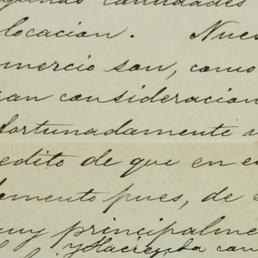 locacion. Nues
omercio son, como
ran consideracion
fortunadamente
edito de que en e
emento pues, de
muy principalme
y Hacienda com